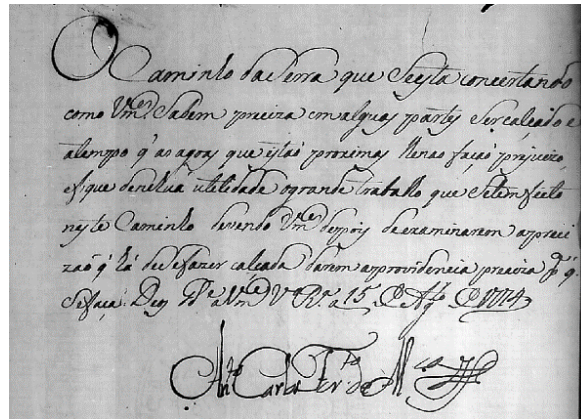 O Caminho da Serra que Se esta concertando
como Vmces Sabem preciza em alguas partes Ser calçado e
a tempo q' as agoas que estaõ proximas lhe naõ façaõ prejuizo,
e fique de nenhua utilidade o grande trabalho que Se tem feito
neste Caminho devendo Vmces depois de examinarem a preci
zaõ q' há de se fazer calçada darem a providencia preciza pa q'
Se faça. Ds Gde a Vmces V Ra a 15 de Agto de 1774
Anto Carlos Furdo de Mça